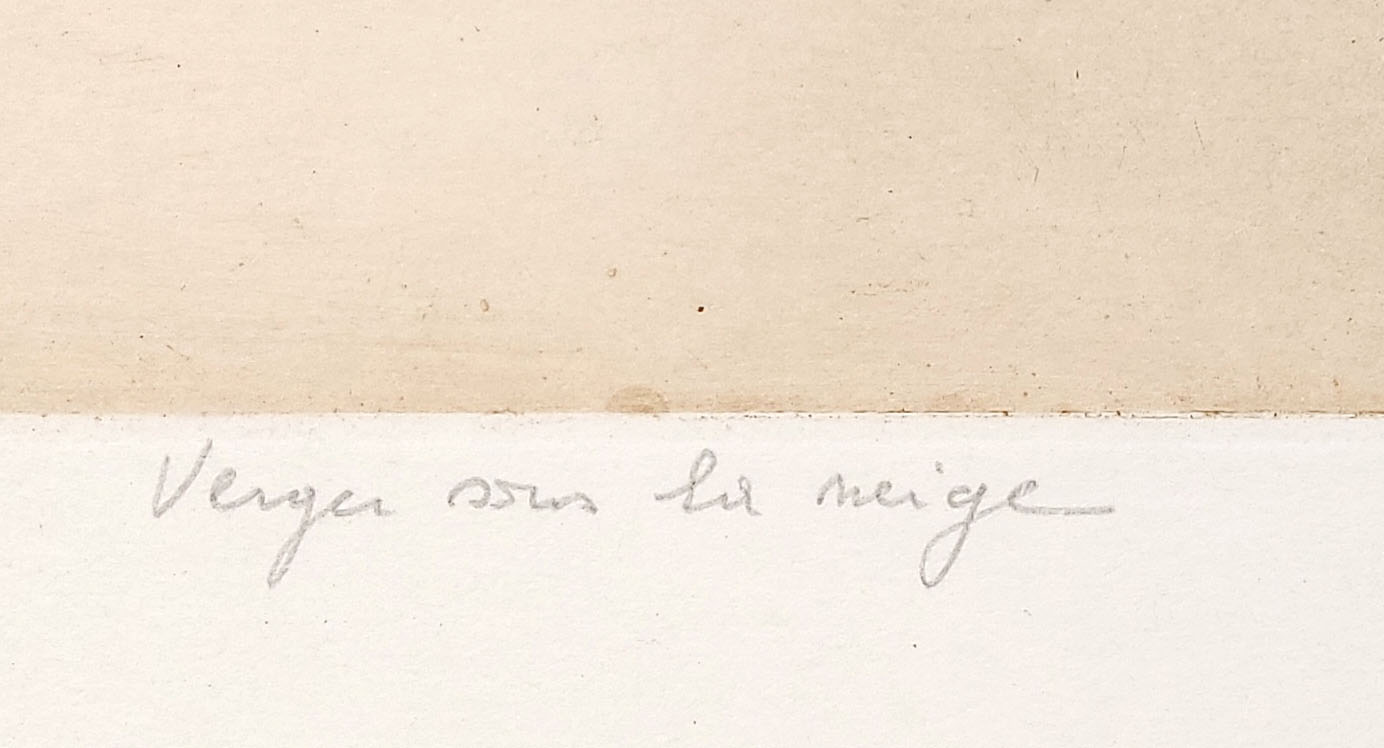 Verger sous la neige